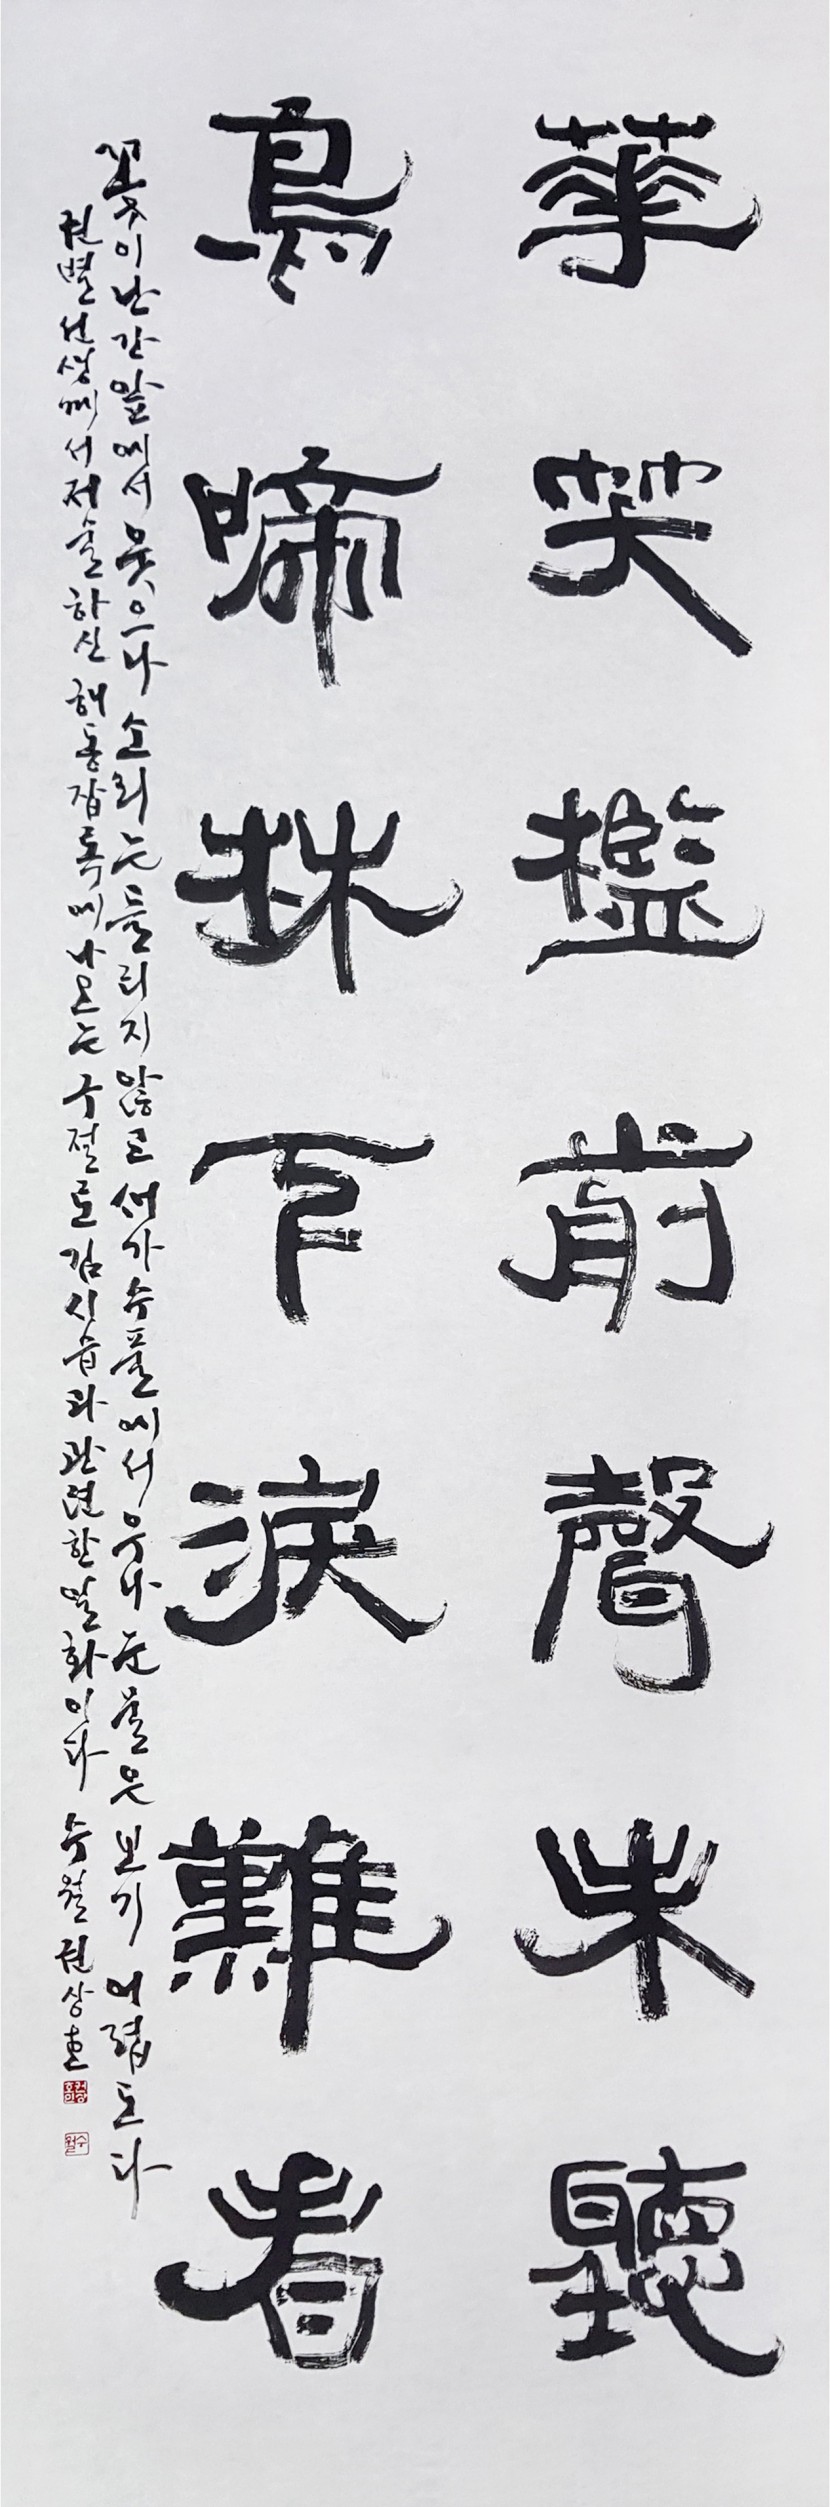 華笑檻前聲未聽
鳥啼林下淚難看
꽃이 난간 앞에서 웃으나 소리는 들리지 않고 새가 수풀에서 우나 눈물은 보기 어렵도다
권별 선생께서 저술하신 해동잡록에 나오는 구절로 김시습과 관련한 일화이다 수월 권상호
권상호인
수월